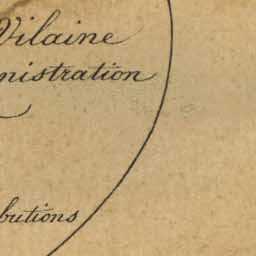 Vilaine
nistration
butions